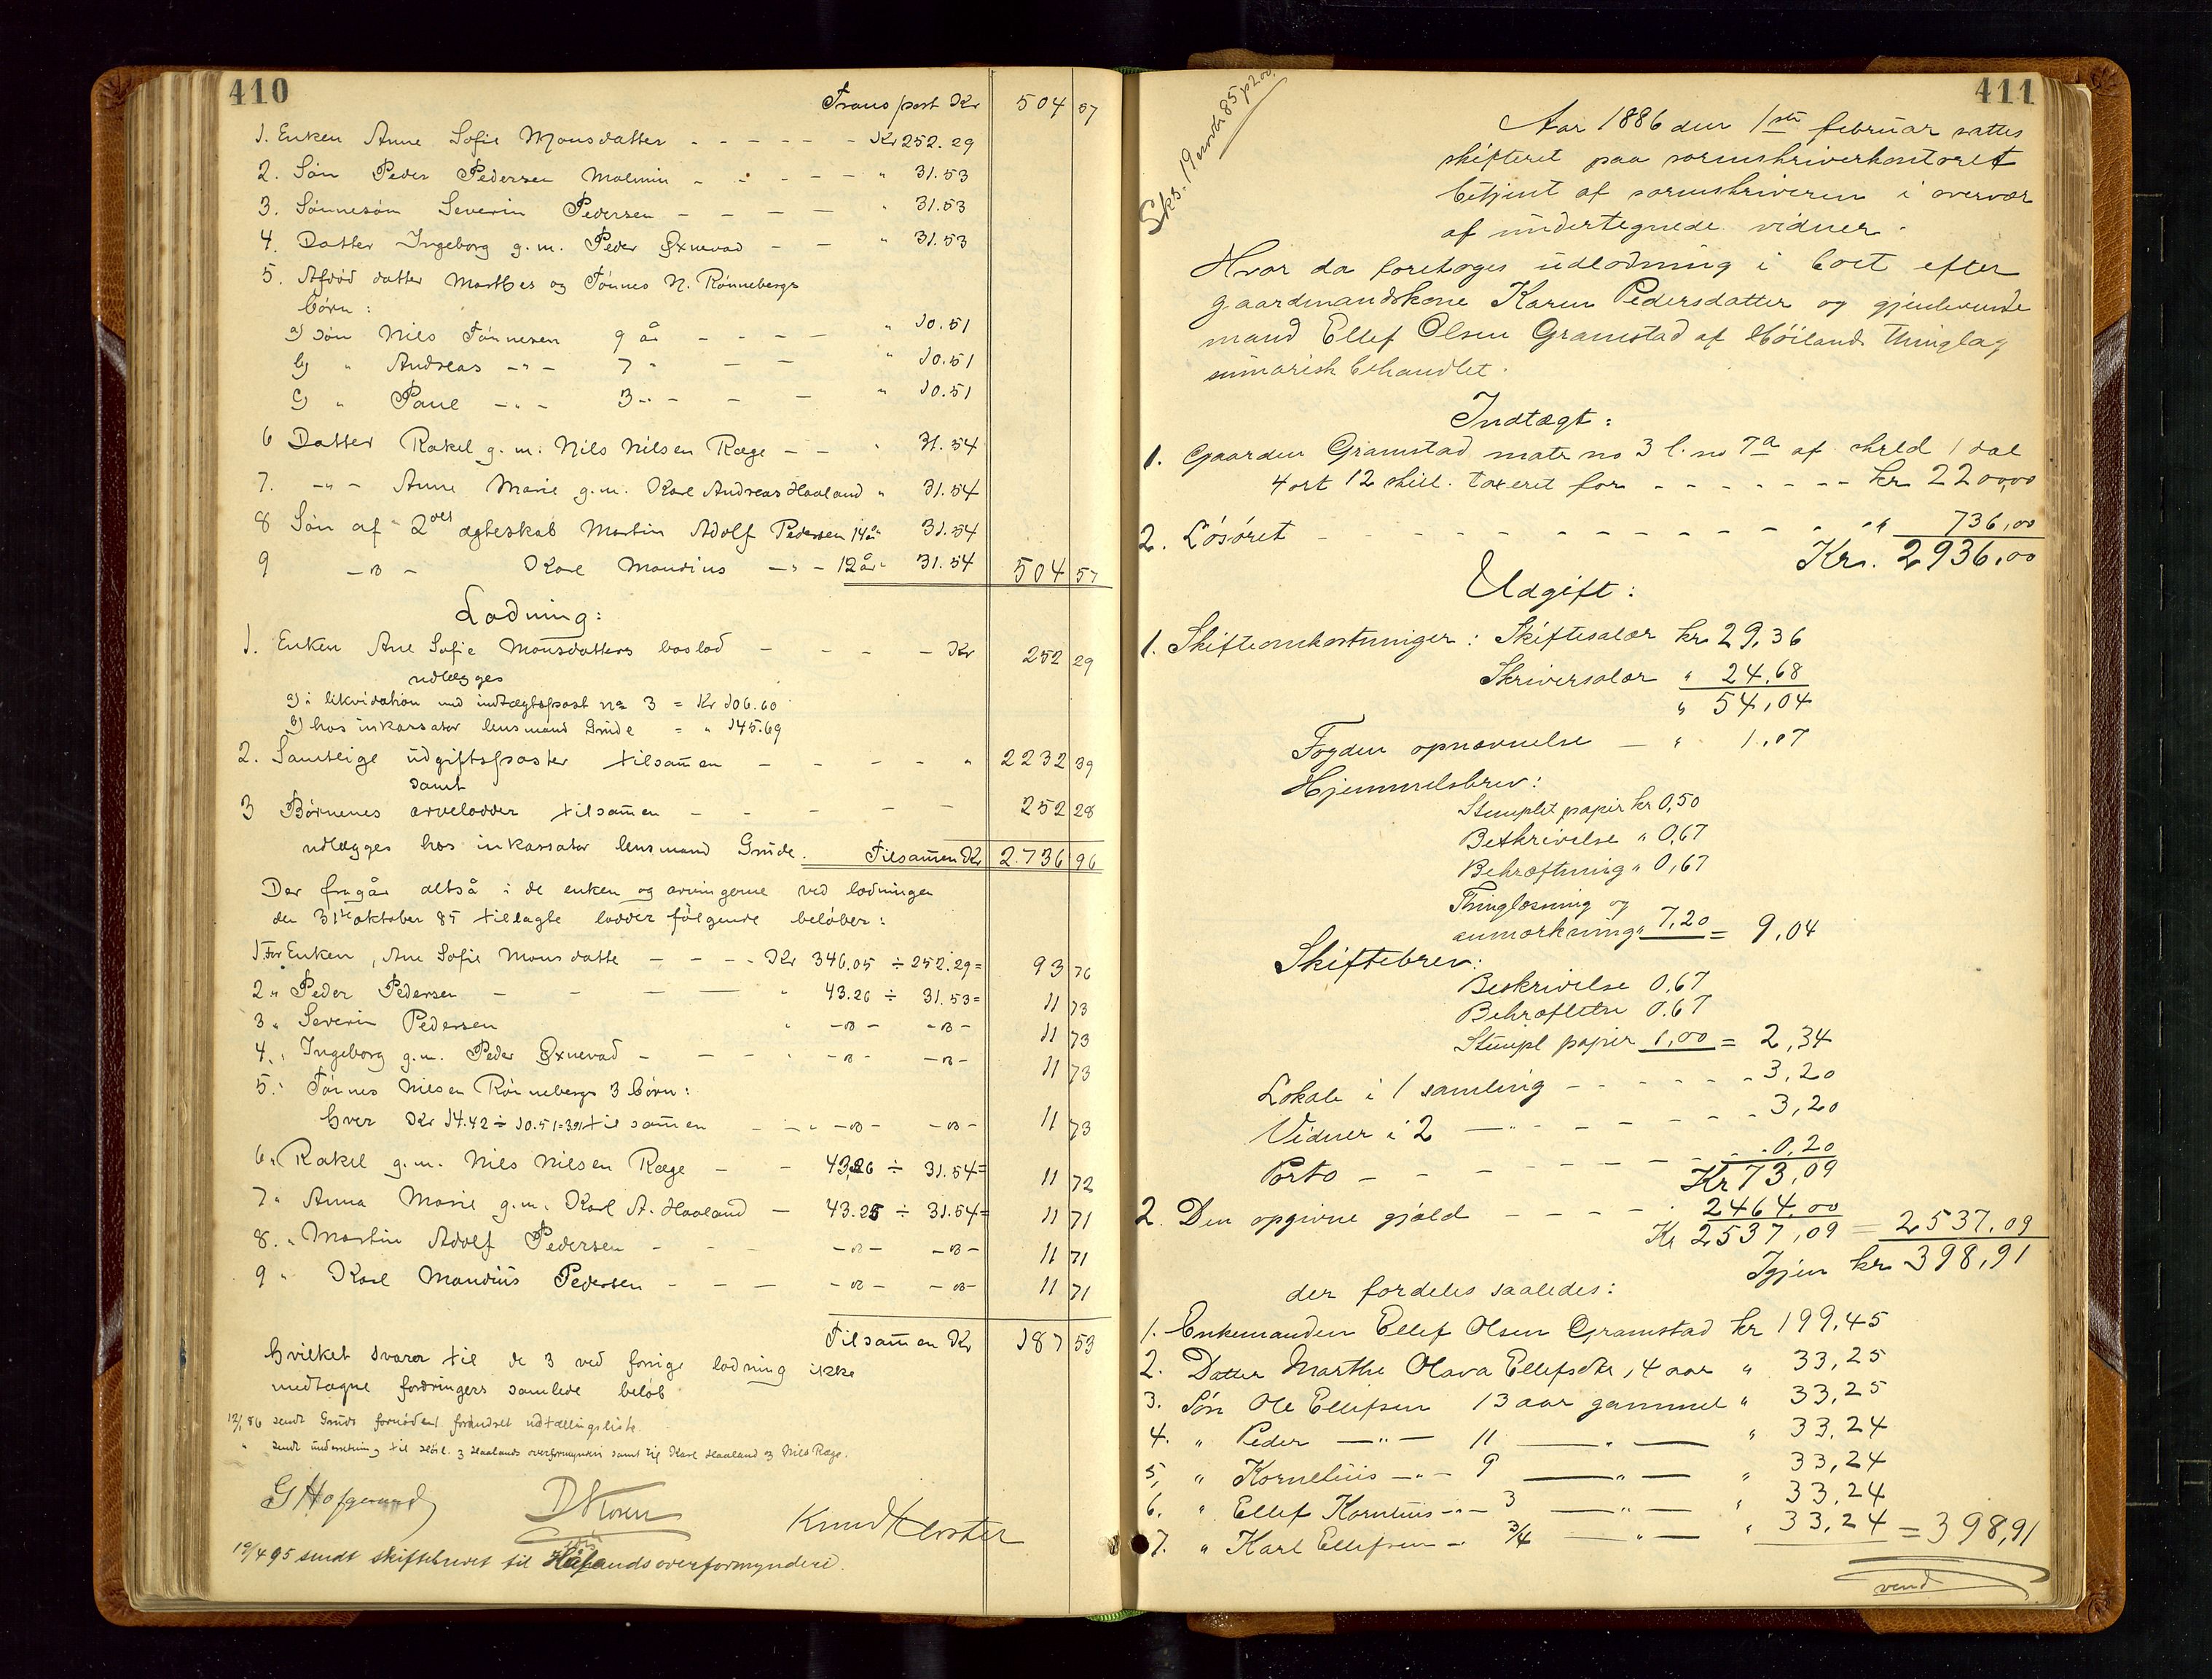 410
Transport Kr 504 57
1. Enken Anne Sofie Monsdatter - - - - - Kr 252.29
2. Søn Peder Pedersen Malmin - - - - - " 31.53
3. Sønnesøn Severin Pedersen - - - - " 31.53
4. Datter Ingeborg g.m. Peder Øxnevad - - " 31.53
5. Afdød datter Marthes og Tønnes N. Rønnebergs
børn:
a) søn Nils Tønnesen 9 år - - - - " 10.51
b) " Andreas -"- 7 " - - " 10.51
c) " Paul -"- 3 " - - - " 10.51
6 Datter Rakel g.m. Nils Nilsen Ræge - - " 31.54
7. -"- Anne Marie g.m. Karl Andreas Haaland " 31.54
8 Søn af 2det ægteskab Martin Adolf Pedersen 14 år 31.54
9 -"- Karl Mandius -"- 12 år 31.54 504 57
Lodning:
1. Enken Ane Sofie Monsdatters boslod - - - - Kr 252 29
udlægges
a) i likvidation med indtægtspost no 3 = Kr 106.60
b) hos inkassator lensmand Grude = " 145.69
2. Samtlige udgiftsposter tilsamen - - - - - " 2232 39
samt
3 Børnenes arvelodder tilsamen - - - - - 252 28
udlægges hos inkassator lensmand Grude. Tilsamen Kr 2.736 96
Der fragår altså i de enken og arvingerne ved lodningen
den 31te oktober 85 tillagte lodder følgende beløber:
1. For Enken, Ane Sofie Monsdatte - - - - Kr 346.05 ÷ 252.29 = 93 76
2 " Peder Pedersen - - - - " 43.26 ÷ 31.53 = 11 73
3 " Severin Pedersen " -"- -"- 11 73
4. " Ingeborg g.m. Peder Øxnevad - - - " -"- -"- 11 73
5. " Tønnes Nilsen Rønnebergs 3 børn:
hver Kr 14.42 ÷ 10.51 = 3.91 tilsamen - - -"- -"- 11 73
6. " Rakel g.m. Nils Nilsen Ræge - - 43.26 ÷ 31.54 = 11 72
7 " Anna Marie g.m. Karl A. Haaland - 43.25 ÷ 31.54 = 11 71
8. " Martin Adolf Pedersen - - - -"- -"- 11 71
9 " Karl Mandius Pedersen - - - -"- -"- 11 71
Tilsamen Kr 187 53
hvilket svarer til de 3 ved forrige lodning ikke
medtagne fordringers samlede beløb.
12/1 86 sendt Grude fornøden forandret udtællingsliste.
" sendt underretning til Høil. & Haalands overformynderi samt til Karl Haaland & Nils Ræge.
D Koren
Knud
19/4 95 sendt skiftebrevet til overformynderi.
411
Sks. 19 novbr 85
Aar 1886 den 1ste februar sattes
skifteret paa sorenskriverkontoret
betjent af sorenskriveren i overvær
af undertegnede vidner.
Hvor da foretoges udlodning i boet efter
gaardmandskone Karen Pedersdatter og gjenlevende
mand Ellef Olsen Gramstad af Høilands thinglag
sumarisk behandlet.
Indtægt:
1. Gaarden Gramstad matr no 3 l. no 7a af skyld 1 dal
4 ort 12 skill. taxeret for - - - - - - - kr. 2200,00
2. Løsøret - - - - - - - - - - - - " 736,00
Kr. 2936,00
Udgift:
1. Skifteomkostninger: Skiftesalær kr 29,36
Skriversalær " 24,68
" 54,04
Fogden opnævnelse - " 1,07
Hjemmelsbrev:
Stemplet papir kr 0,50
Beskrivelse " 0,67
Bekræftning " 0,67
Thinglæsning og
anmærkning " 7,20 = 9,04
Skiftebrev:
Beskrivelse 0,67
Bekræftelse 0,67
Stempl papir 1,00 = 2,34
Lokale i 1 samling - - - - - - 3,20
Vidner i 2 -"- - - - - - - 3,20
Porto - - - - - - - - 0,20
Kr 73,09
2. Den opgivne gjæld - - - - 2464,00
Kr 2537,09 = 2537,09
Igjen kr 398,91
der fordeles saaledes:
1. Enkemanden Ellef Olsen Gramstad kr 199,45
2. Datter Marthe Olava Ellefsdtr, 4 aar " 33,25
3. Søn Ole Ellefsen 13 aar gammel " 33,25
4. " Peder -"- 11 -"- " 33,24
5, " Kornelius -"- 9 -"- " 33,24
6. " Ellef Kornelius -"- 3 -"- " 33,24
7. " Karl Ellefsen - 3/4 -"- " 33,24 = 398,91
vend